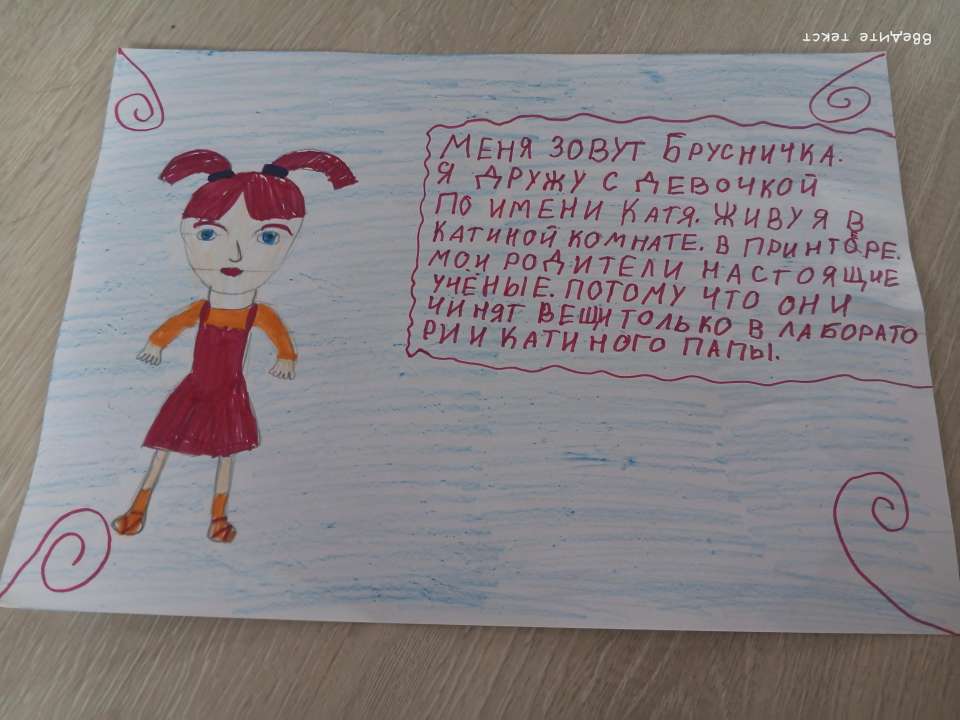 Введите текст
МЕНЯ ЗОВУТ БРУСНИЧКА.
Я ДРУЖУ С ДЕВОЧКОЙ
ПО ИМЕНИ КАТЯ. ЖИВУ Я В
КАТИНОЙ КОМНАТЕ. В ПРИНТОРЕ.
МОИ РОДИТЕЛИ НАСТОЯЩИЕ
УЧЁНЫЕ. ПОТОМУ ЧТО ОНИ
ЧИНЯТ ВЕЩИ ТОЛЬКО В ЛАБОРАТО
РИИ КАТИНОГО ПАПЫ.